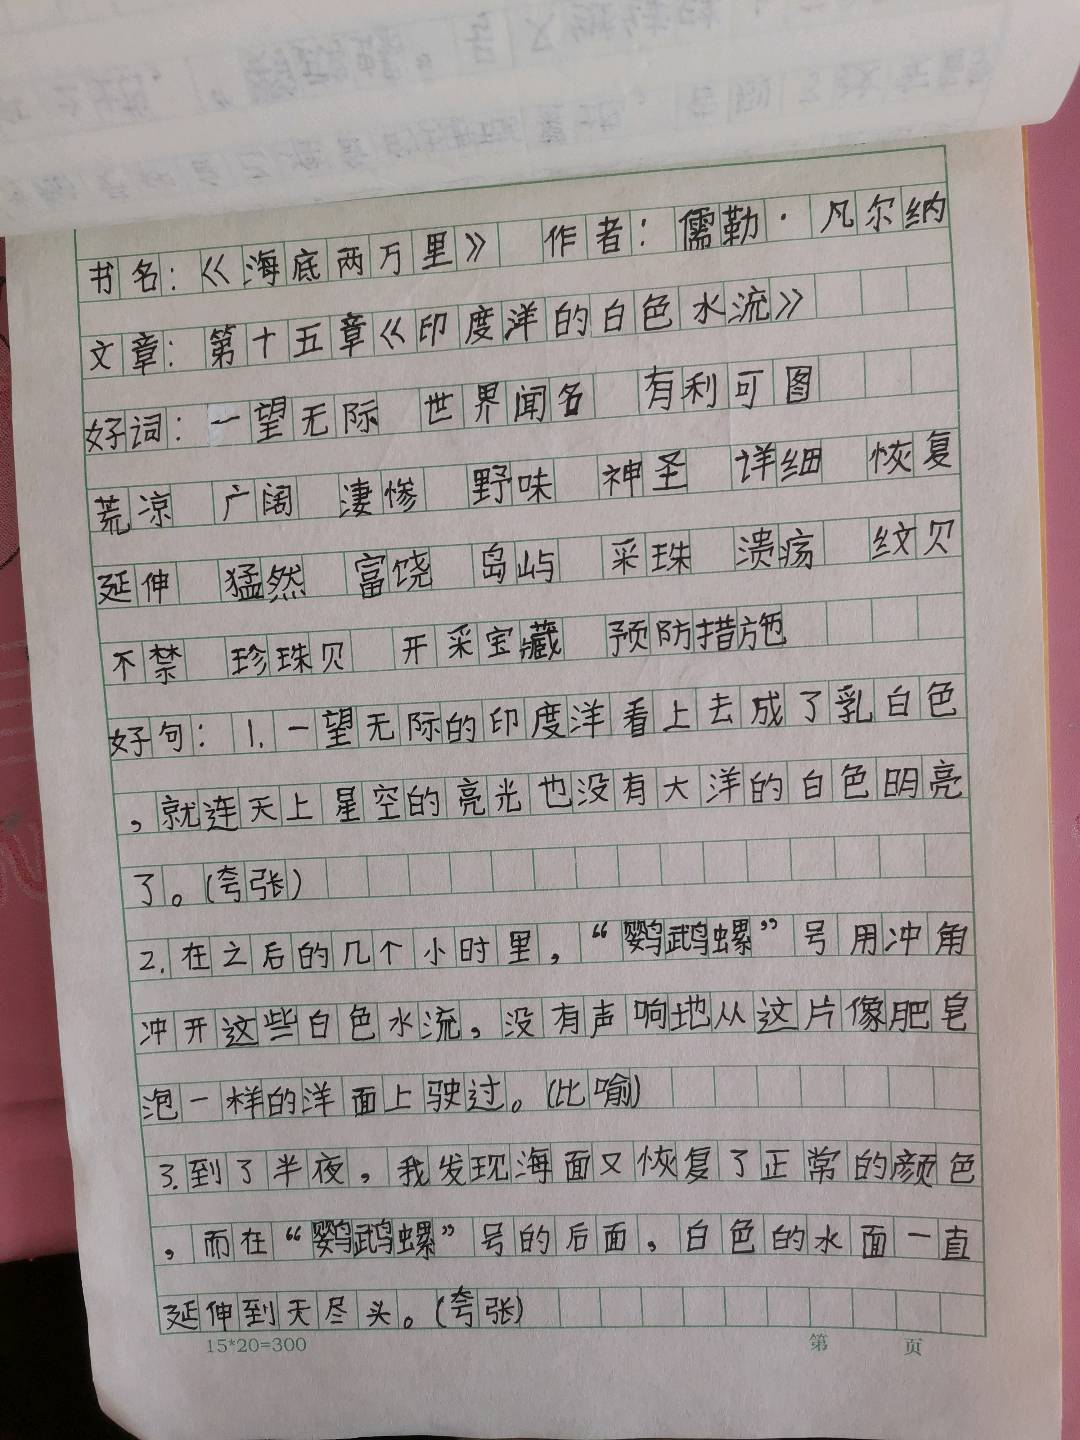 书名：《海底两万里》 作者：儒勒·凡尔纳
文章：第十五章《印度洋的白色水流》
好词：一望无际 世界闻名 有利可图
荒凉 广阔 凄惨 野味 神圣 详细 恢复
延伸 猛然 富饶 岛屿 采珠 溃疡 纹贝
不禁 珍珠贝 开采宝藏 预防措施
好句：1.一望无际的印度洋看上去成了乳白色
，就连天上星空的亮光也没有大洋的白色明亮
了。(夸张)
2.在之后的几个小时里，“鹦鹉螺”号用冲角
冲开这些白色水流，没有声响地从这片像肥皂
泡一样的洋面上驶过。(比喻)
3.到了半夜，我发现海面又恢复了正常的颜色
，而在“鹦鹉螺”号的后面，白色的水面一直
延伸到天尽头。(夸张)
15*20=300 第 页